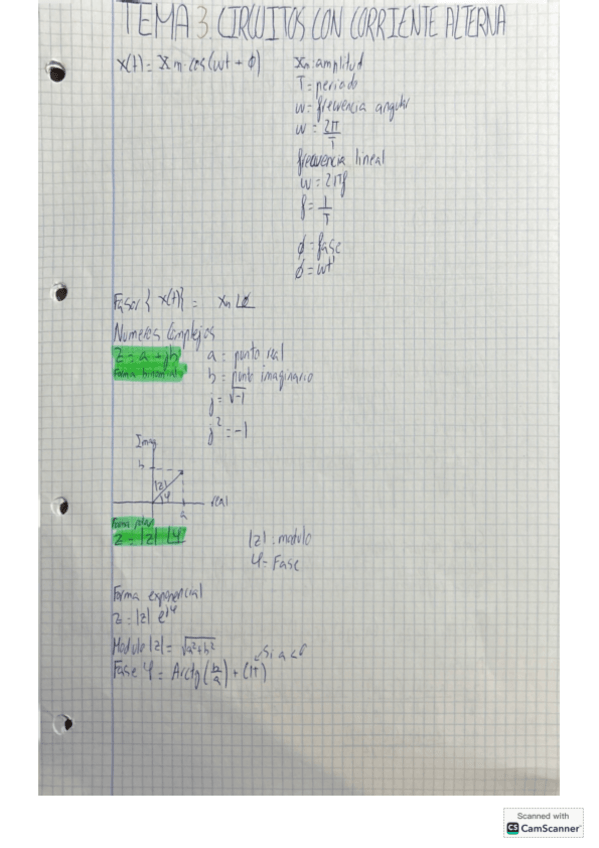 TEMA 3 CIRCUITOS CON CORRIENTE ALTERNA
x(t) = Xm·cos(wt + ϕ)
Xm: amplitud
T = periodo
w = frecuencia angular
w = 2π/T
frecuencia lineal
w = 2πf
f = 1/T
ϕ = fase
ϕ = wt'
Fasor { x(t) } = Xm∠ϕ
Numeros Complejos
Z = a + jb
Forma binomial
a = punto real
b = punto imaginario
j = √-1
j² = -1
Imag
b
|z|
φ
real
a
Forma polar
Z = |z| ∠φ
|z| : modulo
φ = Fase
Forma exponencial
Z = |z| e^jφ
Modulo |z| = √a²+b²
Si a<0
Fase φ = Arctg(b/a) + (π)
Scanned with
CS CamScanner